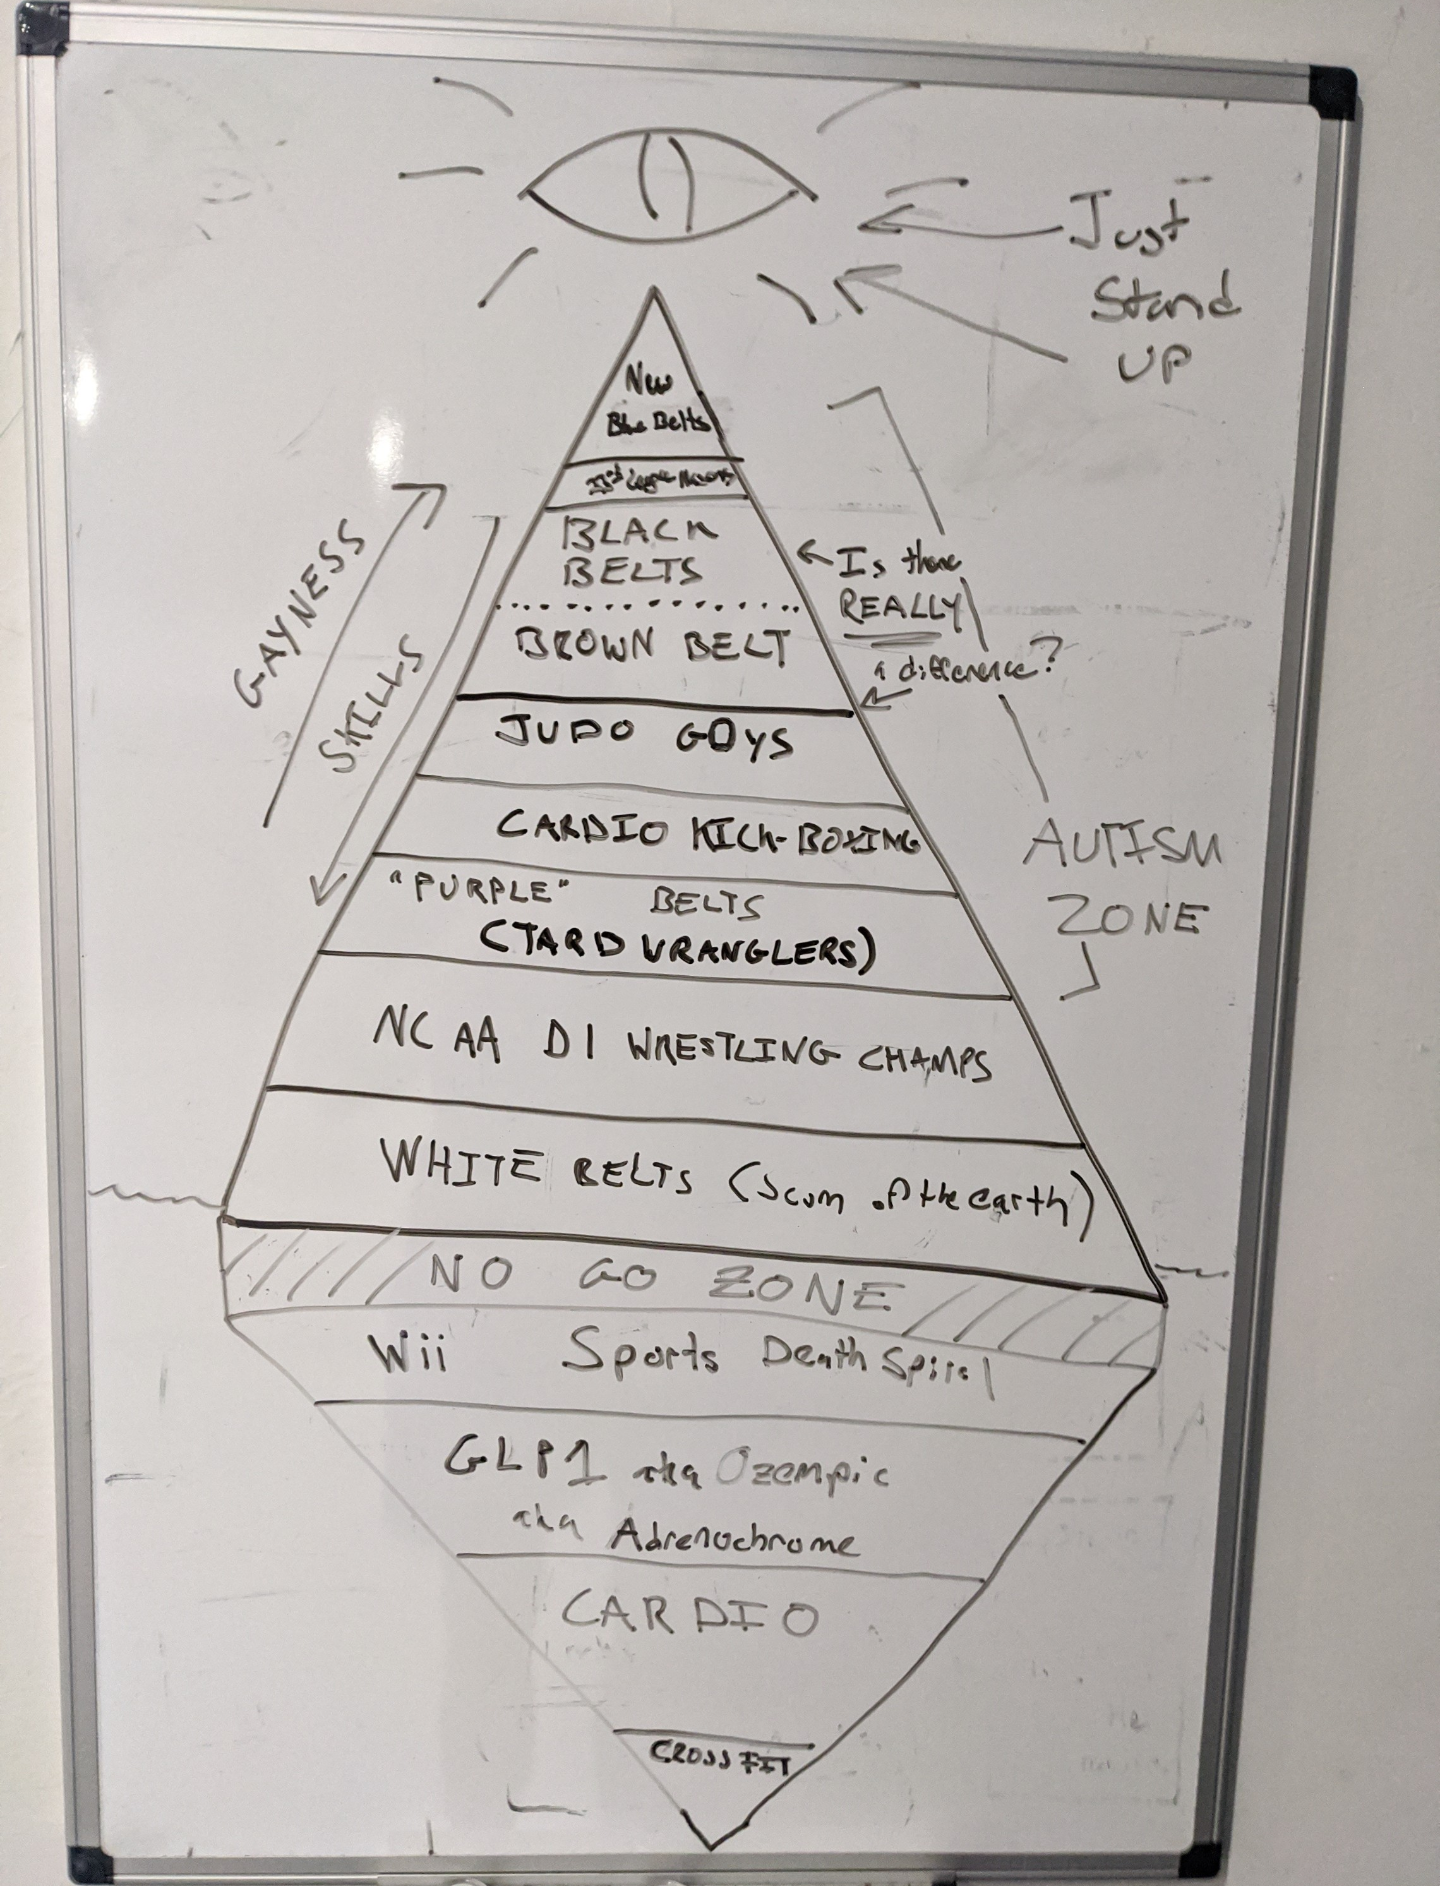 Just
Stand
UP
New
Blue Belts
33rd Degree Masons
BLACK
BELTS
Is there
REALLY
a difference?
BROWN BELT
GAYNESS
SKILLS
JUDO GUYS
CARDIO KICK-BOXING
AUTISM
ZONE
"PURPLE" BELTS
(TARD WRANGLERS)
NCAA D1 WRESTLING CHAMPS
WHITE BELTS (scum of the earth)
NO GO ZONE
Wii Sports Death Spiral
GLP1 aka Ozempic
aka Adrenochrome
CARDIO
CROSSFIT